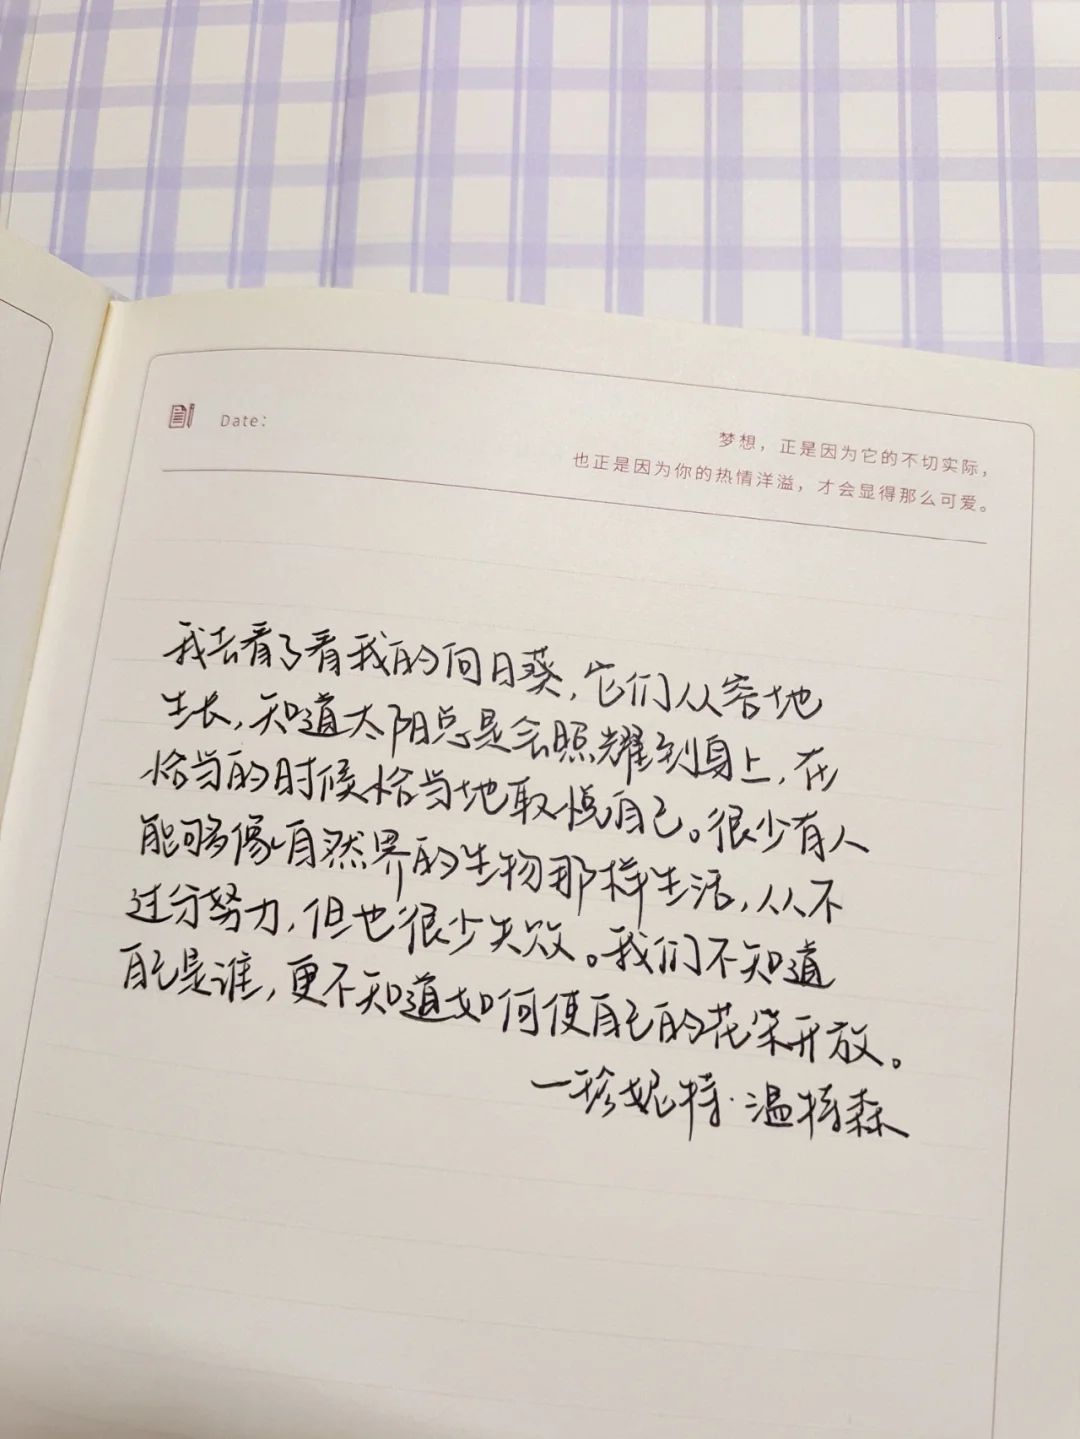 Date:
梦想，正是因为它的不切实际，
也正是因为你的热情洋溢，才会显得那么可爱。
我去看了看我的向日葵，它们从容地
生长，知道太阳总是会照耀到身上，在
恰当的时候恰当地取悦自己。很少有人
能够像自然界的生物那样生活，从不
过分努力，但也很少失败。我们不知道
自己是谁，更不知道如何使自己的花朵开放。
—珍妮特·温特森